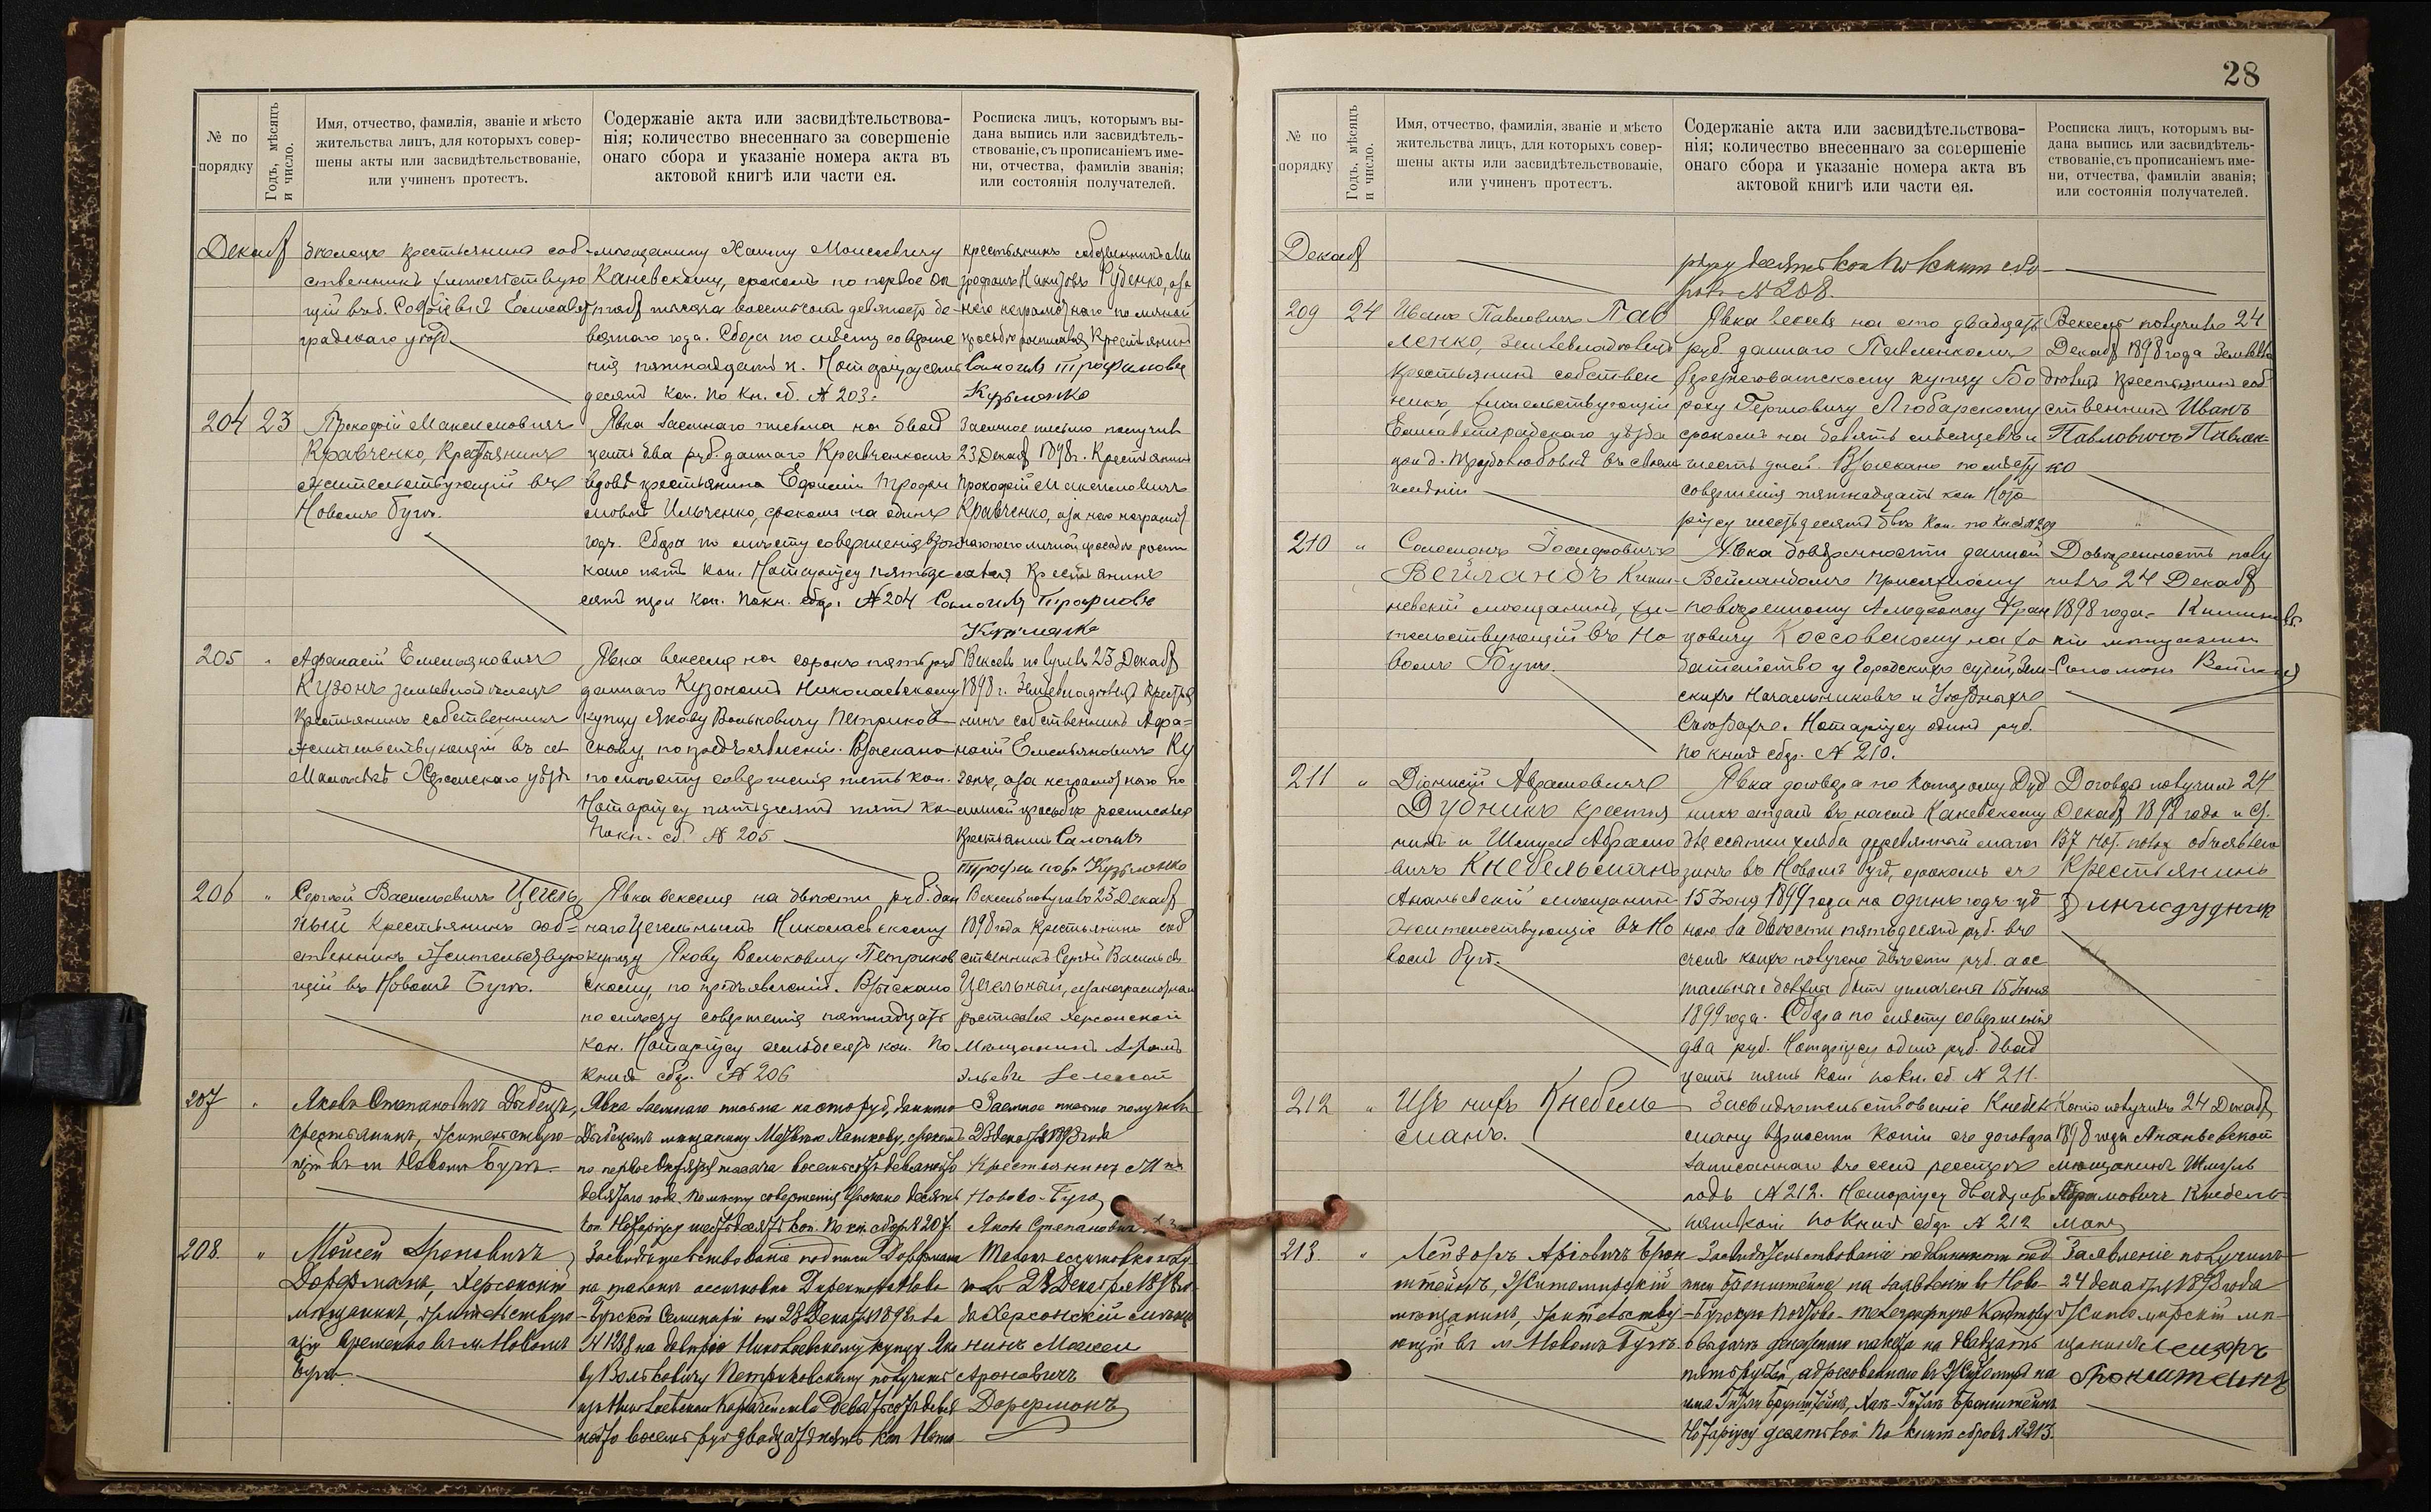 28
№ по порядку
Годъ, мѣсяцъ и число.
Имя, отчество, фамилія, званіе и мѣсто
жительства лицъ, для которыхъ совер-
шены акты или засвидѣтельствованіе,
или учиненъ протестъ.
Содержаніе акта или засвидѣтельствова-
нія; количество внесеннаго за совершеніе
онаго сбора и указаніе номера акта въ
актовой книгѣ или части ея.
Росписка лицъ, которымъ вы-
дана выпись или засвидѣтель-
ствованіе, съ прописаніемъ име-
ни, отчества, фамиліи званія;
или состоянія получателей.
крестьянинъ соб-
ственникъ жительствую
градскаго уѣзд.
мѣщанину Хаиму Моисеевичу
Каневскому, срокомъ по первое Ок
вятаго года. Сбора по мѣсту соверше
нія пятнадцать к. Нотаріусу семь
десят коп. по кн. сб. № 203.
крестьянинъ собственникъ Ми
Никитовъ Руденко, а за
него неграмотнаго по личной
Самоилъ Трофимовъ
Кузьменко
204 23
Прокофій Максимовичъ
Кравченко, Крестьянинъ
жительствующій въ
Новомъ Бугѣ.
Явка заемнаго письма на двад
цать два руб. даннаго Кравченкомъ
вдовѣ крестьянина Ефиміи Трофи
мовнѣ Ильченко, срокомъ на одинъ
годъ. Сбора по мѣсту совершенія взыс
кано пять коп. Нотаріусу пятьде
сятъ три коп. По кн. сбор. № 204
Заемное письмо получилъ
23 Декаб 1898 г. Крестьянинъ
Прокофій Максимовичъ
Кравченко, а за него неграмот
Крестьянинъ
Самоилъ Трофимовъ
Кузьменко
205 "
Афанасій Емельяновичъ
Кузонъ землевладѣлецъ
Крестьянинъ собственникъ
жительствующій въ
Херсонскаго уѣзд
Явка векселя на сорокъ пять руб
даннаго Кузономъ Николаевскому
купцу Якову Вольковичу Петриков
скому, по предъявленіи. Взыскано
по мѣсту совершенія пять коп.
Нотаріусу пятьдесятъ пять ко
По кн. сб. № 205
Вексель получилъ 23 Декаб
1898 г. Землевладѣлецъ Крестья
нинъ собственникъ Афа=
насій Емельяновичъ Ку
зонъ, а за неграмотнаго по
личной просьбѣ росписался
Крестьянинъ Самоилъ
Трофимовъ Кузьменко
206 "
Сергѣй Васильевичъ Цегель
ный Крестьянинъ соб=
ственникъ жительствую
щій въ Новомъ Бугѣ.
Явка векселя на двѣсти руб. дан
наго Цегельнымъ Николаевскому
купцу Якову Вольковичу Петриков
скому, по предъявленіи. Взыскано
по мѣсту совершенія пятнадцать
коп. Нотаріусу семьдесятъ коп. По
книгѣ сбор. № 206
Вексель получилъ 23 Декаб
1898 года Крестьянинъ соб
ственникъ Сергѣй Васильев
Цегельный, а за неграмотнаг
росписался Херсонской
Мещанинъ
207 "
Яковъ Степановичъ Дыбецъ,
крестьянинъ, жительствую-
щій въ м Новомъ Бугѣ.
Явка заемнаго письма на сто руб, даннаго
Дыбецомъ мѣщанину
по первое Октября тысяча восемьсотъ девяносто
девятаго года. По мѣсту совершенія взыскано десять
коп. Нотаріусу шестьдесятъ коп. По кн. сборъ № 207.
Заемное письмо получилъ
23 декабря 1898 года
Крестьянинъ
Новово-Буга
Яковъ Степановичъ
208. "
Моисей Ароновичъ
Дорфманъ, Херсонскій
мѣщанинъ, жительствую-
щій временно въ м Новомъ
Бугѣ.
Засвидѣтельствованіе подписи Дорфмана
на талонѣ ассигновки Директора Ново
-Бугской Семинаріи отъ 23 Декабря 1898 года
Николаевскому купцу Яко
ву Вольковичу Петриковскому получить
изъ Николаевскаго Казначейства девятьсотъ девя
носто восемь руб двадцать пять коп Нота-
Талонъ ассигновки полу
Херсонскій мѣща
нинъ Моисей
Ароновичъ
Дорфманъ
№ по порядку
Годъ, мѣсяцъ и число.
Имя, отчество, фамилія, званіе и мѣсто
жительства лицъ, для которыхъ совер-
шены акты или засвидѣтельствованіе,
или учиненъ протестъ.
Содержаніе акта или засвидѣтельствова-
нія; количество внесеннаго за совершеніе
онаго сбора и указаніе номера акта въ
актовой книгѣ или части ея.
Росписка лицъ, которымъ вы-
дана выпись или засвидѣтель-
ствованіе, съ прописаніемъ име-
ни, отчества, фамиліи званія;
или состоянія получателей.
ріусу десять коп По книгѣ сбо
ровъ № 208.
209 24
Иванъ Павловичъ Пав
ленко, землевладѣлецъ
крестьянинъ собствен
никъ, жительствующій
Елисаветградскаго уѣзда
Явка векселя на сто двадцать
руб. даннаго Павленкомъ
купцу Бо
руху Герцовичу Любарскому
срокомъ на девять мѣсяцевъ и
шесть дней. Взыскано по мѣсту
совершенія пятнадцать коп Нота
ріусу шестьдесятъ двѣ коп. по кн сб № 209
Вексель получилъ 24
Декаб 1898 года Землевла
дѣлецъ крестьянинъ соб
ственникъ Иванъ
Павловичъ Павлен-
ко
210 "
Соломонъ Іосифовичъ
Вейландъ Киши-
невскій мѣщанинъ, жи-
тельствующій въ Но
вомъ Бугѣ.
Явка довѣренности данной
Вейландомъ присяжному
повѣренному Амвросу Фран
цовичу Коссовскому на хо
датайство у городскихъ судей, зем
скихъ Начальниковъ и Уѣздныхъ
Съѣздахъ. Нотаріусу одинъ руб.
по книгѣ сбор. № 210.
Довѣренность полу
чилъ 24 Декаб
1898 года. Кишинев
Соломонъ Вейланд
211 "
Діонисій Аврамовичъ
Дудникъ крестья
нинъ и Шмуль Абрамо
вичъ Кнебельманъ
Ананьевскій мѣщанинъ
жительствующіе въ Но
вомъ Бугѣ.
Явка договора по которому Дуд
никъ отдалъ въ наемъ Каневскому
зинъ въ Новомъ Бугѣ, срокомъ съ
15 Іюня 1899 года на одинъ годъ цѣ
ною за двѣсти пятьдесятъ руб. въ
счетъ коихъ получено двѣсти руб. а ос
тальные должны быть уплачены 15 Іюня
1899 года. Сбора по мѣсту совершенія
два руб. Нотаріусу одинъ руб. двад
цать пять коп. по кн. сб № 211.
Договоръ получилъ 24
Декаб 1898 года и ст.
Крестьянинъ
212 "
Изъ нихъ Кнебель
манъ.
Засвидѣтельствованіе Кнебель
ману вѣрности копіи съ договора
записаннаго въ семъ реестрѣ
подъ № 212. Нотаріусу двадцать
пять коп по книгѣ сбор № 212
Копію получилъ 24 Декаб
1898 года Ананьевской
мѣщанинъ Шмуль
Абрамовичъ Кнебель-
манъ
213. "
Лейзоръ Аріовичъ Брон
штейнъ, Житомирскій
мѣщанинъ, жительству-
ющій въ м Новомъ Бугѣ
Засвидѣтельствованіе подлинности под
писи Бронштейна на заявленіи въ Ново-
-Бугскую Почтово-телеграфную Контору
о выдачѣ денежнаго пакета на двадцать
пять рублей, адресованнаго въ Житомиръ на
Нотаріусу десять коп По книгѣ сборовъ № 213.
Заявленіе получилъ
24 декабря 1898 года
Житомирскій мѣ-
щанинъ Лейзоръ
Бронштейнъ